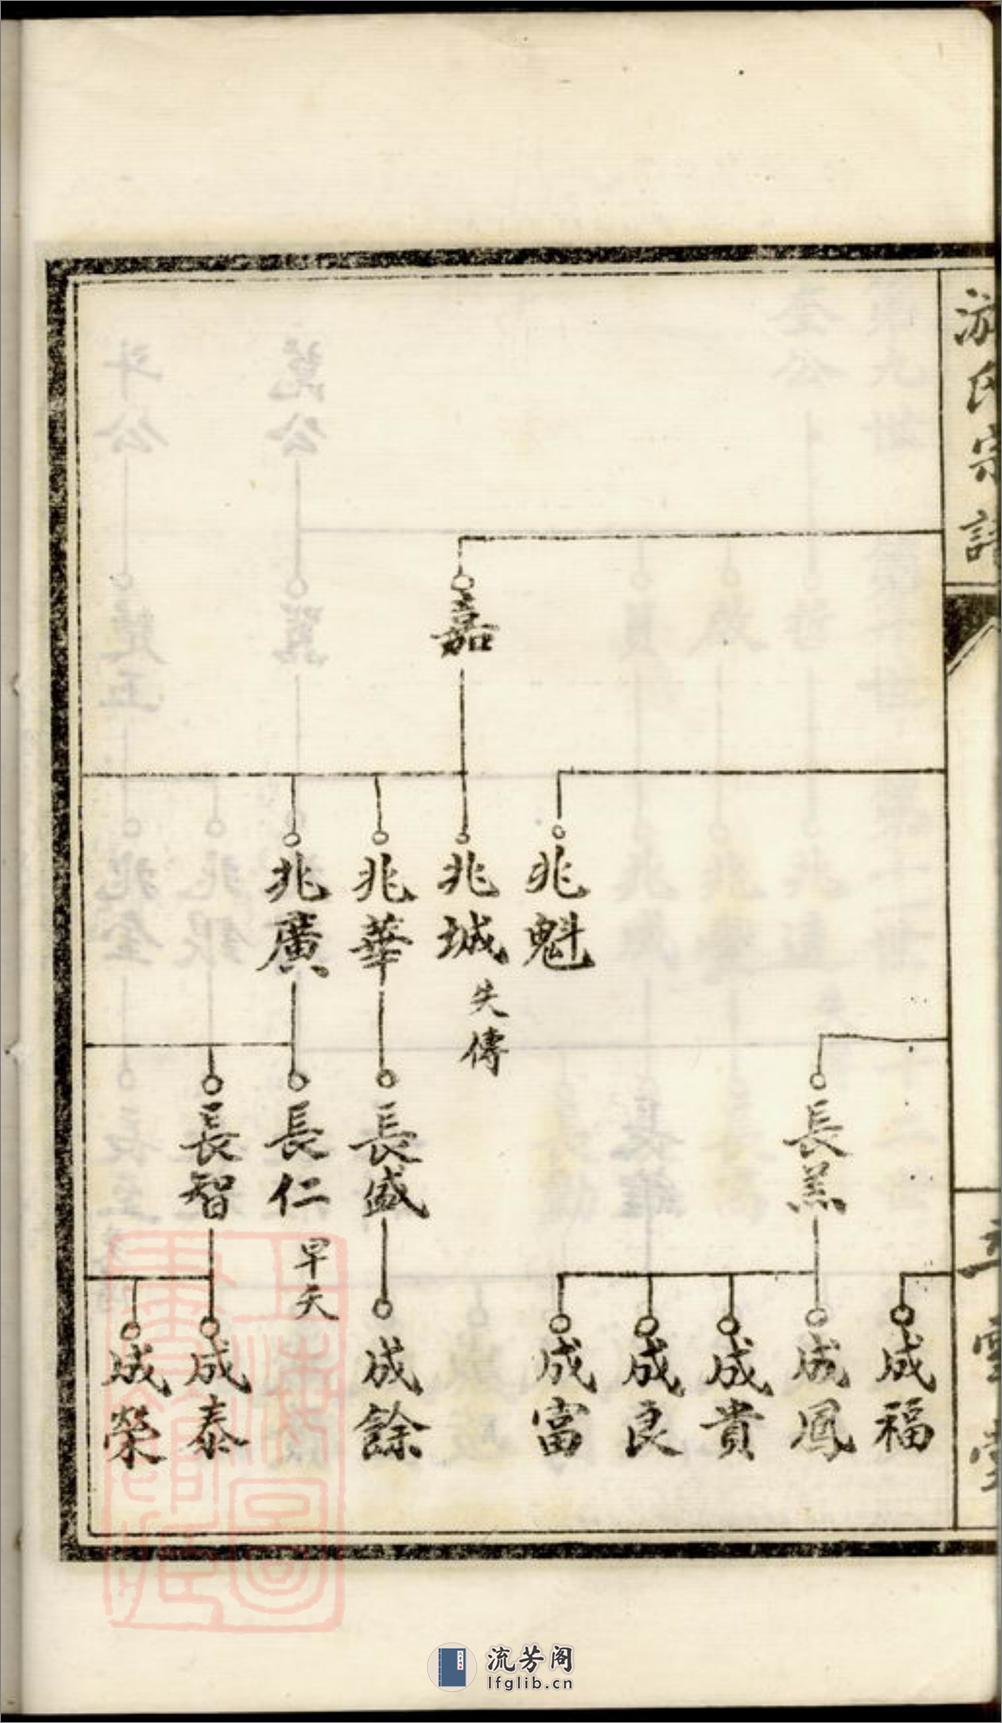 游氏宗譜
立雪堂
嘉
兆魁
兆城
失傳
兆華
兆廣
長羔
長盛
長仁
早夭
長智
成福
成鳳
成貴
成良
成富
成餘
成泰
成榮
上海圖書館藏
流芳阁
lfglib.cn